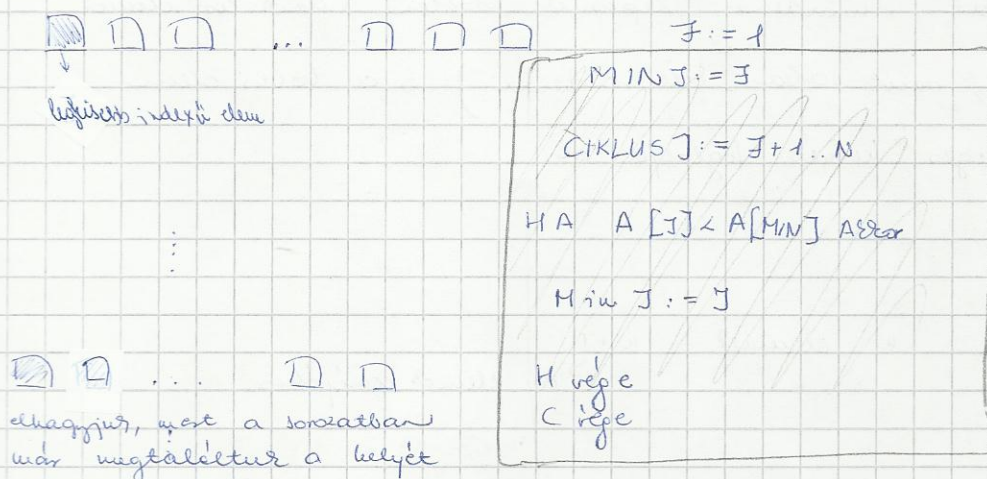 ...
legkisebb indexű elem
⋮
...
elhagyjuk, mert a sorozatban
már megtaláltuk a helyét
I := 1
MIN I := I
CIKLUS J := I + 1 .. N
HA A [J] < A[MIN] AKKOR
Min I := J
H vége
C vége